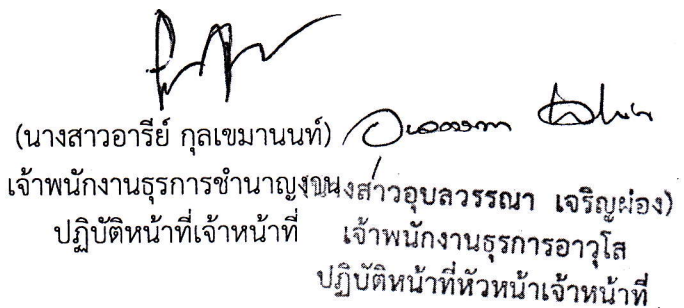 (นางสาวอารีย์ กุลเขมานนท์)
เจ้าพนักงานธุรการชำนาญงาน
ปฏิบัติหน้าที่เจ้าหน้าที่
นางสาวอุบลวรรณา เจริญผ่อง)
เจ้าพนักงานธุรการอาวุโส
ปฏิบัติหน้าที่หัวหน้าเจ้าหน้าที่